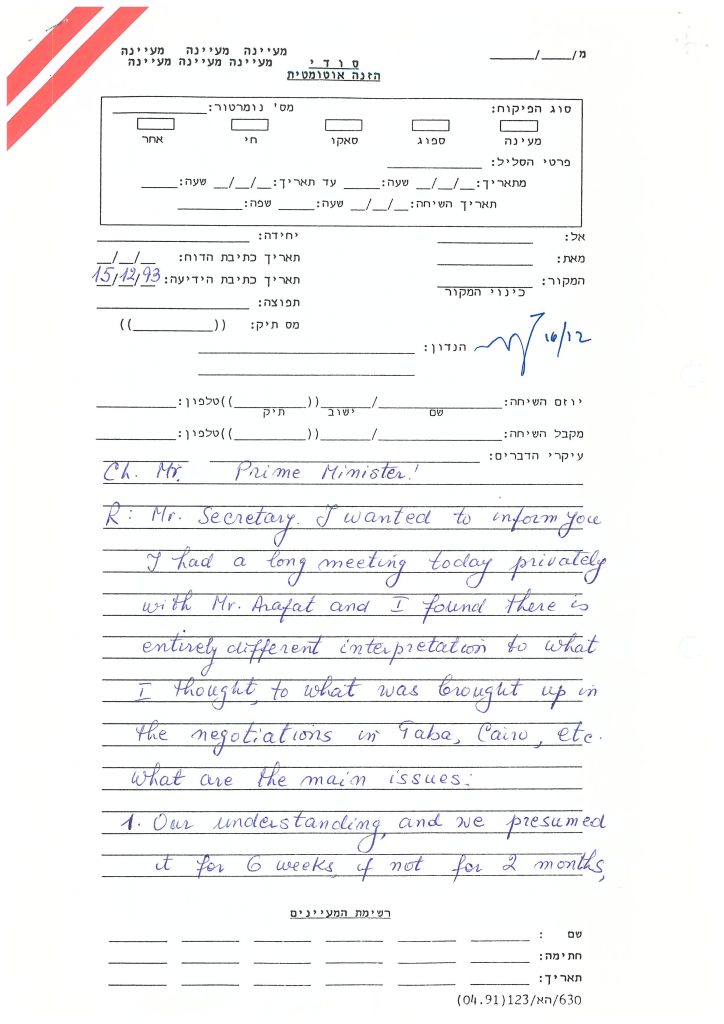 מעיינה מעיינה מעיינה
מעיינה מעיינה מעיינה
סודי
הזנה אוטומטית
מ/_____/_____
סוג הפיקוח: מס' נומרטור:
מעינה ספוג סאקו חי אחר
פרטי הסליל:
מתאריך: __/__/__ שעה:_____ עד תאריך: __/__/__ שעה:_____
תאריך השיחה: __/__/__ שעה:_____ שפה:_____
אל: יחידה:
מאת: תאריך כתיבת הדוח: __/__/__
המקור: תאריך כתיבת הידיעה: 15/12/93
כינוי המקור
תפוצה:
מס תיק: ((__________))
הנדון: 16/12
יוזם השיחה: ________/______((________))טלפון:
שם ישוב תיק
מקבל השיחה: ________/______((________))טלפון:
עיקרי הדברים:
Ch. Mr. Prime Minister!
R: Mr. Secretary. I wanted to inform you
I had a long meeting today privately
with Mr. Arafat and I found there is
entirely different interpretation to what
I thought, to what was brought up in
the negotiations in Taba, Cairo, etc.
What are the main issues:
1. Our understanding, and we presumed
it for 6 weeks, if not for 2 months,
רשימת המעיינים
שם :
חתימה:
תאריך:
630/הא/123(04.91)